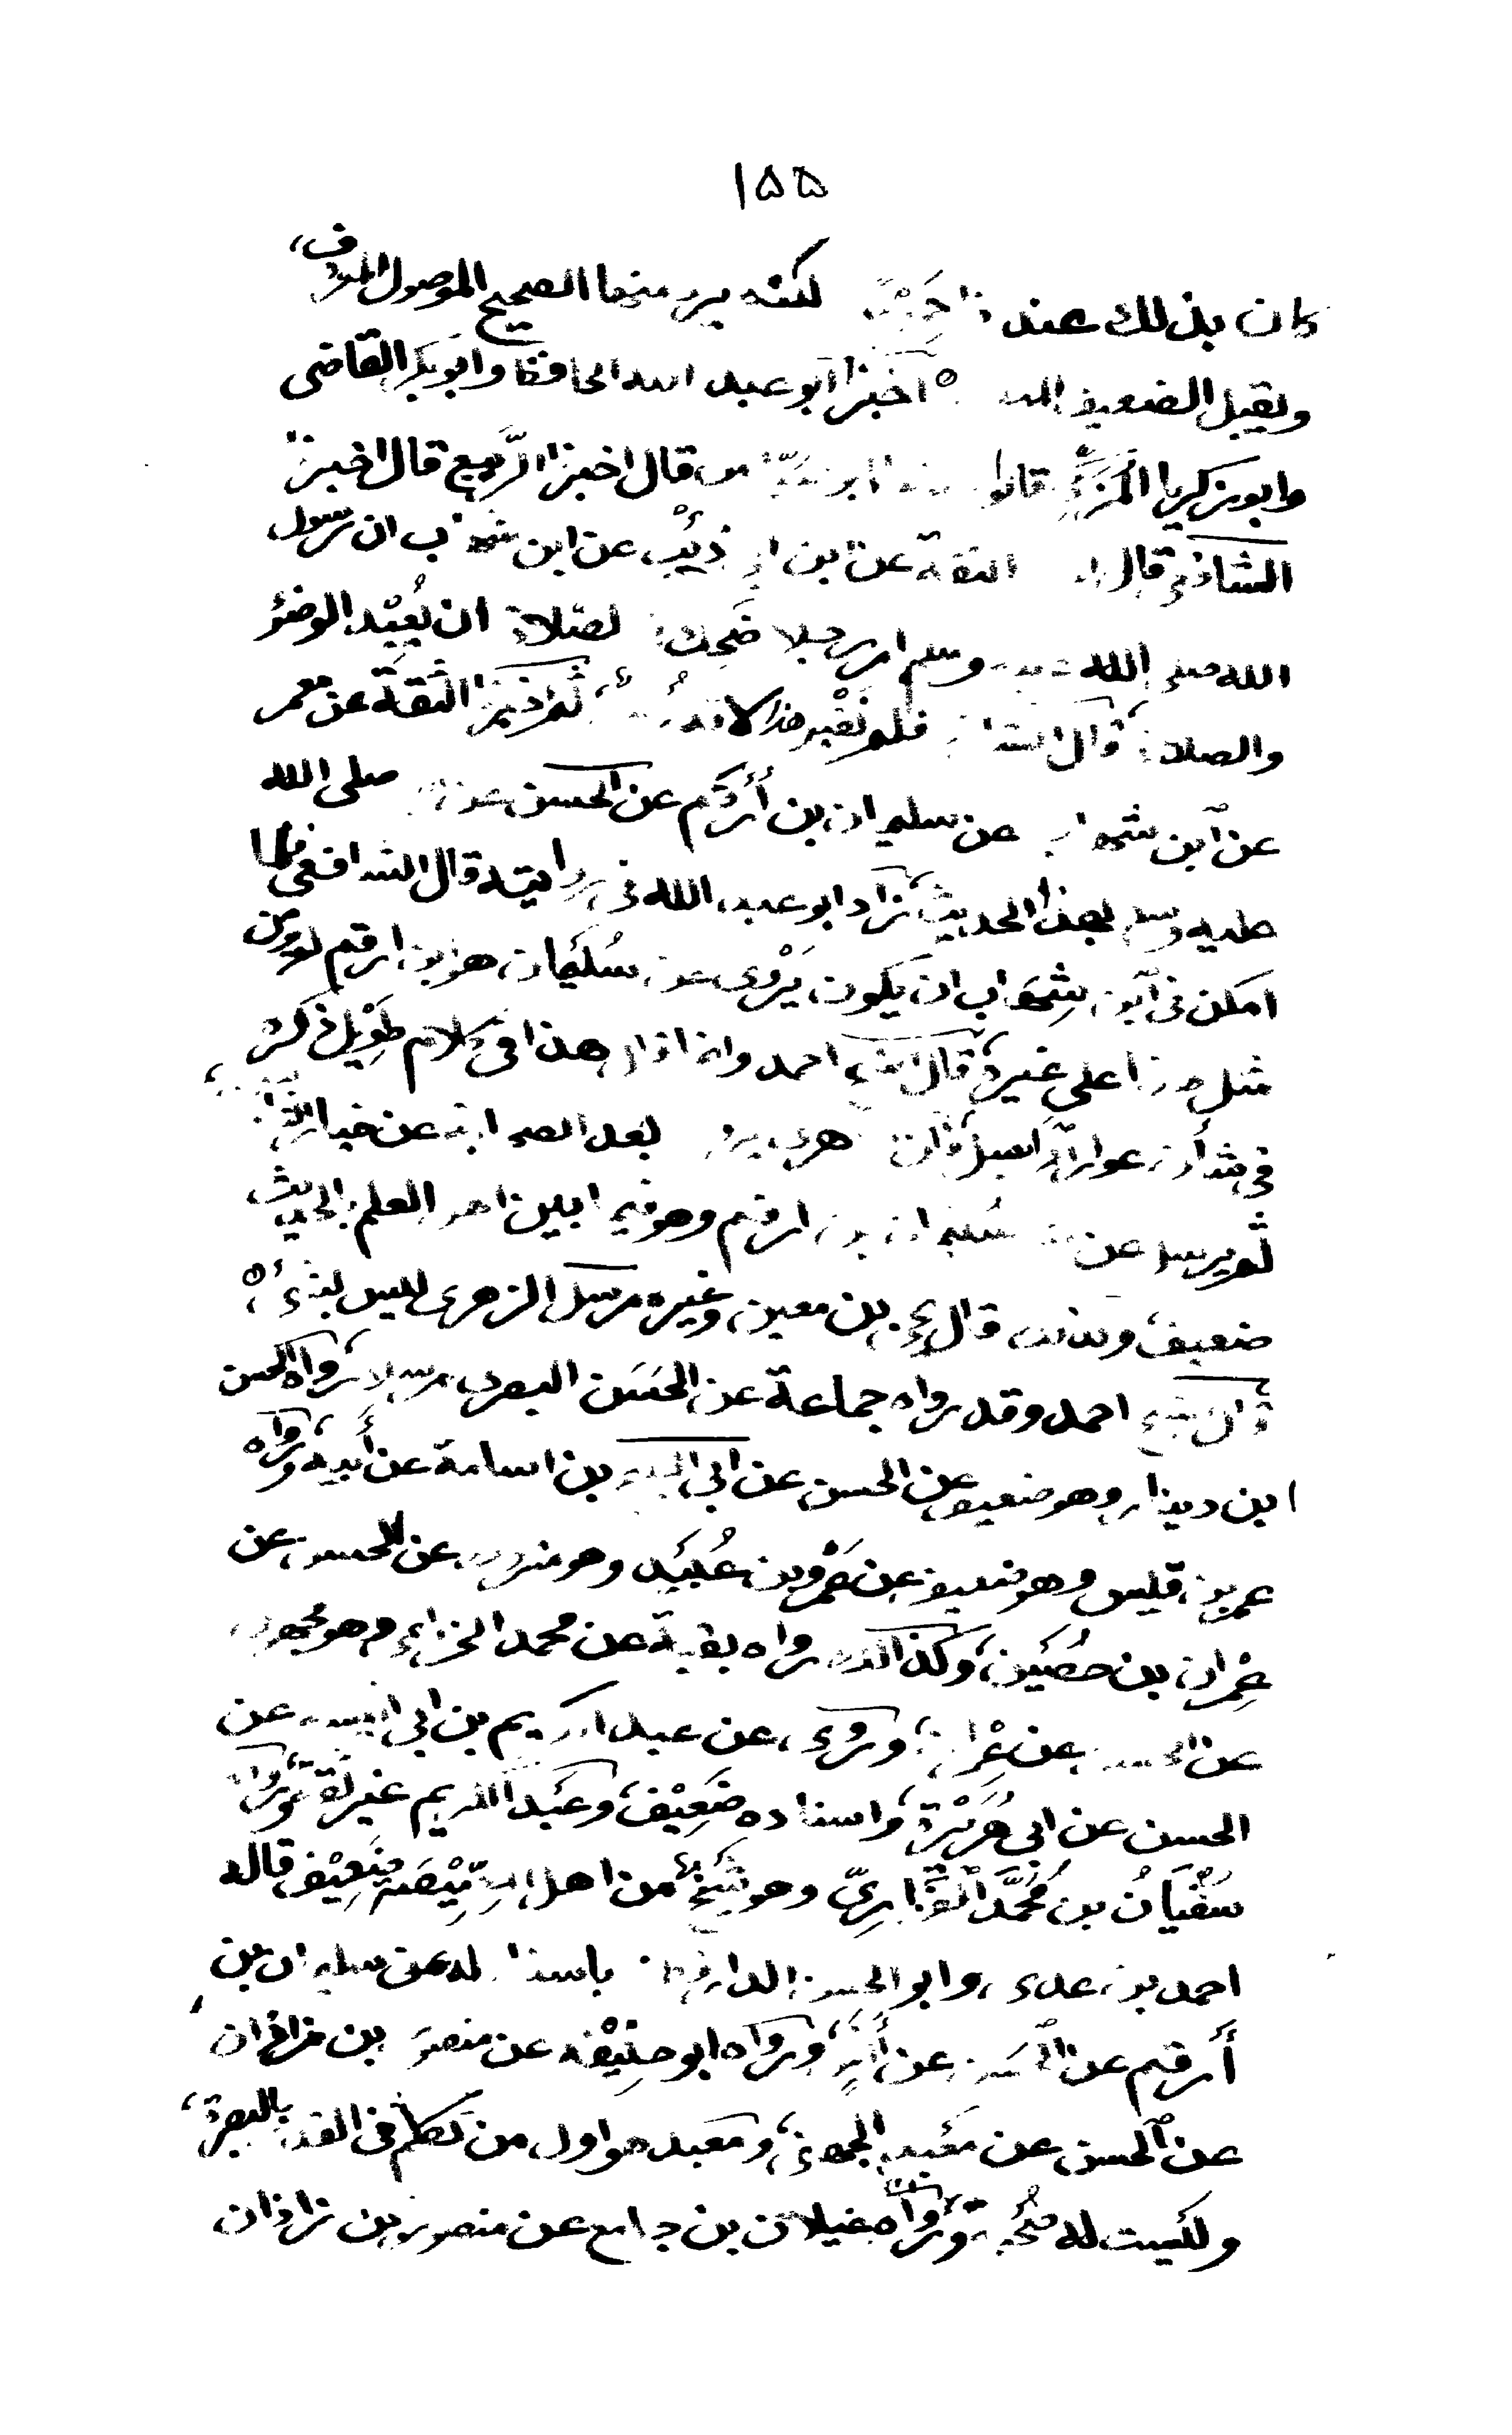 ١٥٥
كان بذلك عند لكنه يرد منها الصحيح الموصول المعروف،
ويقبل الضعيف اخبرنا ابو عبد الله الحافظ وابو بكر القاضى
وابو زكريا المزكى قالوا قال اخبرنا الربيع قال اخبرنا
الشافعى قال الثقة عن ابن ابى ذئب عن ابن شهاب ان رسول
الله صلى الله عليه وسلم امر رجلا ضحك الصلاة ان يُعِيْد الوضؤ
والصلاة، قال الشافعى فلم نقبل هذا لانه ثم اخبرنا الثقة عن معمر
عن ابن شهاب عن سليمان بن أرقم عن الحسن عن صلى الله
عليه وسلم بهذا الحديث، زاد ابو عبد الله فى روايته قال الشافعى فلما
امكن فى ابن شهاب ان يكون يَرْوى عن سُلَيْمان بن ارقم لم يؤمن
مثل هذا على غيره، قال الشيخ احمد وانما اراد هذا فى كلام طويل ذكره
فى شأن بعد الصحابة عن خيار
ثم يرسل عن سليمان بن ارقم وهو فيما بين اهل العلم بالحديث
ضعيف، ولذلك قال يحيى بن معين، وغيره مرسل الزهرى ليس بشئ،
قال الشيخ احمد وقد رواه جماعة عن الحَسَن البصرى مرسلا، رواه الحسن
ابن دينار وهو ضعيف عن الحسن عن ابى المليح بن اسامة عن أبيه، ورواه
عمر بن قيس وهو ضعيف عن عَمْرو بن عُبَيْد وهو متروك عن الحسن عن
عِمْران بن حصَيْن، وكذالك رواه بقية عن محمد الخزاعى وهو مجهول
عن الحسن عن عِمْران، وروى عن عبد الكريم بن ابى امية عن
الحسن عن ابى هُرَيْرَة، واسناده ضَعِيْف، وعَبْد الكريم غير ثقة، ورواه
سُفْيَانُ بن مُحَمَّد الفَزَارِىّ وهو شَيْخ من اهل المِصِّيْصَة ضَعِيْف قاله
احمد بن عدى، وابو الحسن الدارقطنى باسناد له عن سليمان بن
أَرقم عن الحسن عن أنس، ورواه ابو حنِيْفه عن منصور بن زاذان
عن الحسن عن مَعْبد الجهنى، ومَعبد هو اول من تكلم فى القدر بالبصرة،
وليست له صُحْبة، ورواه غيلان بن جامع عن منصور بن زاذان